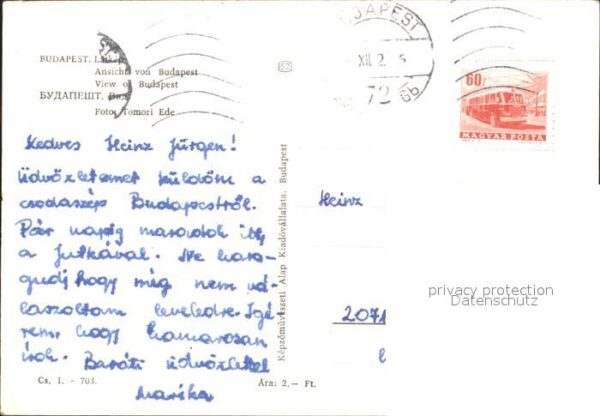 BUDAPEST.
Ansicht von Budapest
View of Budapest
БУДАПЕШТ.
Foto: Tomori Ede
Kedves Heinz Jürgen!
Üdvözletemet küldöm a
csodaszép Budapestről.
Pár napig maradok itt
a Jutkával. Ne hara-
gudj hogy még nem vá-
laszoltam leveledre. Igé-
rem, hogy hamarosan
írok. Baráti üdvözlettel
Marika
Cs. 1. - 703.
Ára: 2,- Ft.
Képzőművészeti Alap Kiadóvállalata, Budapest
BUDAPEST
XII. 2.
72
60
MAGYAR POSTA
Heinz
2071
privacy protection
Datenschutz